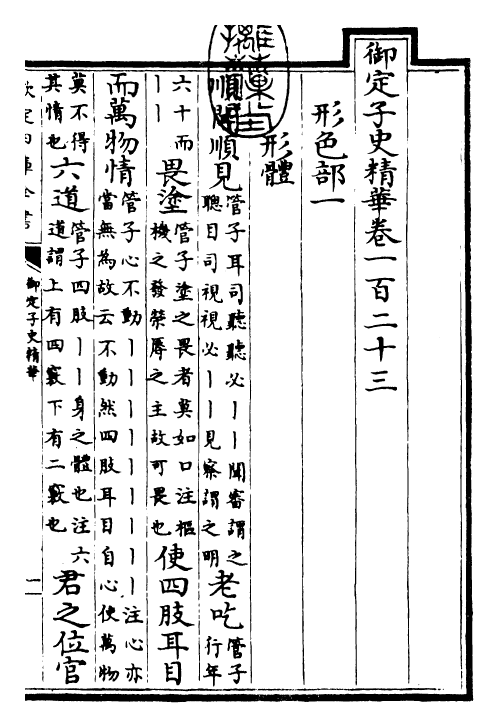 御定子史精華卷一百二十三
形色部一
形體
順聞順見管子耳司聽聽必丨丨聞審謂之
聰目司視視必丨丨見察謂之明老吃管子
行年
六十而
丨丨畏塗管子塗之畏者莫如口注樞
機之發榮辱之主故可畏也使四肢耳目
而萬物情管子心不動丨丨丨丨丨丨丨丨丨注心亦
當無為故云不動然四肢耳目自心使萬物
莫不得
其情也六道管子四肢丨丨身之體也注六
道謂上有四竅下有二竅也君之位官
欽定四庫全書
御定子史精華
一